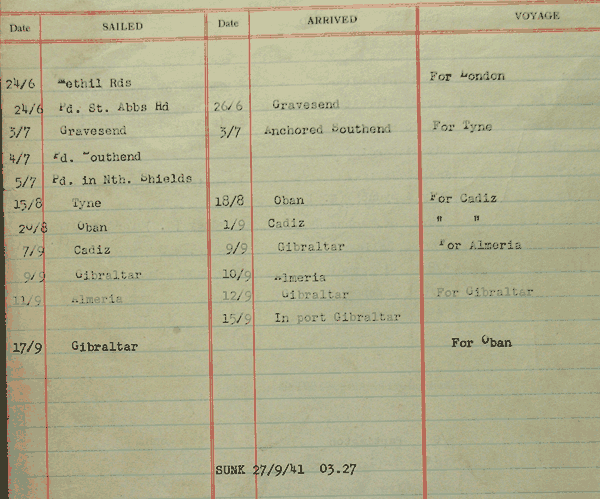 Date SAILED Date ARRIVED VOYAGE
24/6 Methil Rds For London
24/6 Pd. St. Abbs Hd 26/6 Gravesend
3/7 Gravesend 3/7 Anchored Southend For Tyne
4/7 Pd. Southend
5/7 Pd. in Nth. Shields
15/8 Tyne 18/8 Oban For Cadiz
20/8 Oban 1/9 Cadiz " "
7/9 Cadiz 9/9 Gibraltar For Almeria
9/9 Gibraltar 10/9 Almeria
11/9 Almeria 12/9 Gibraltar For Gibraltar
15/9 In port Gibraltar
17/9 Gibraltar For Oban
SUNK 27/9/41 03.27